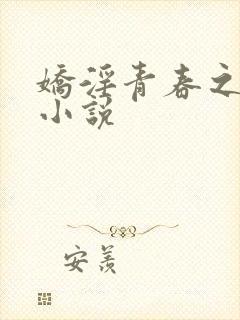 嬌淫青春之
小說
安羡